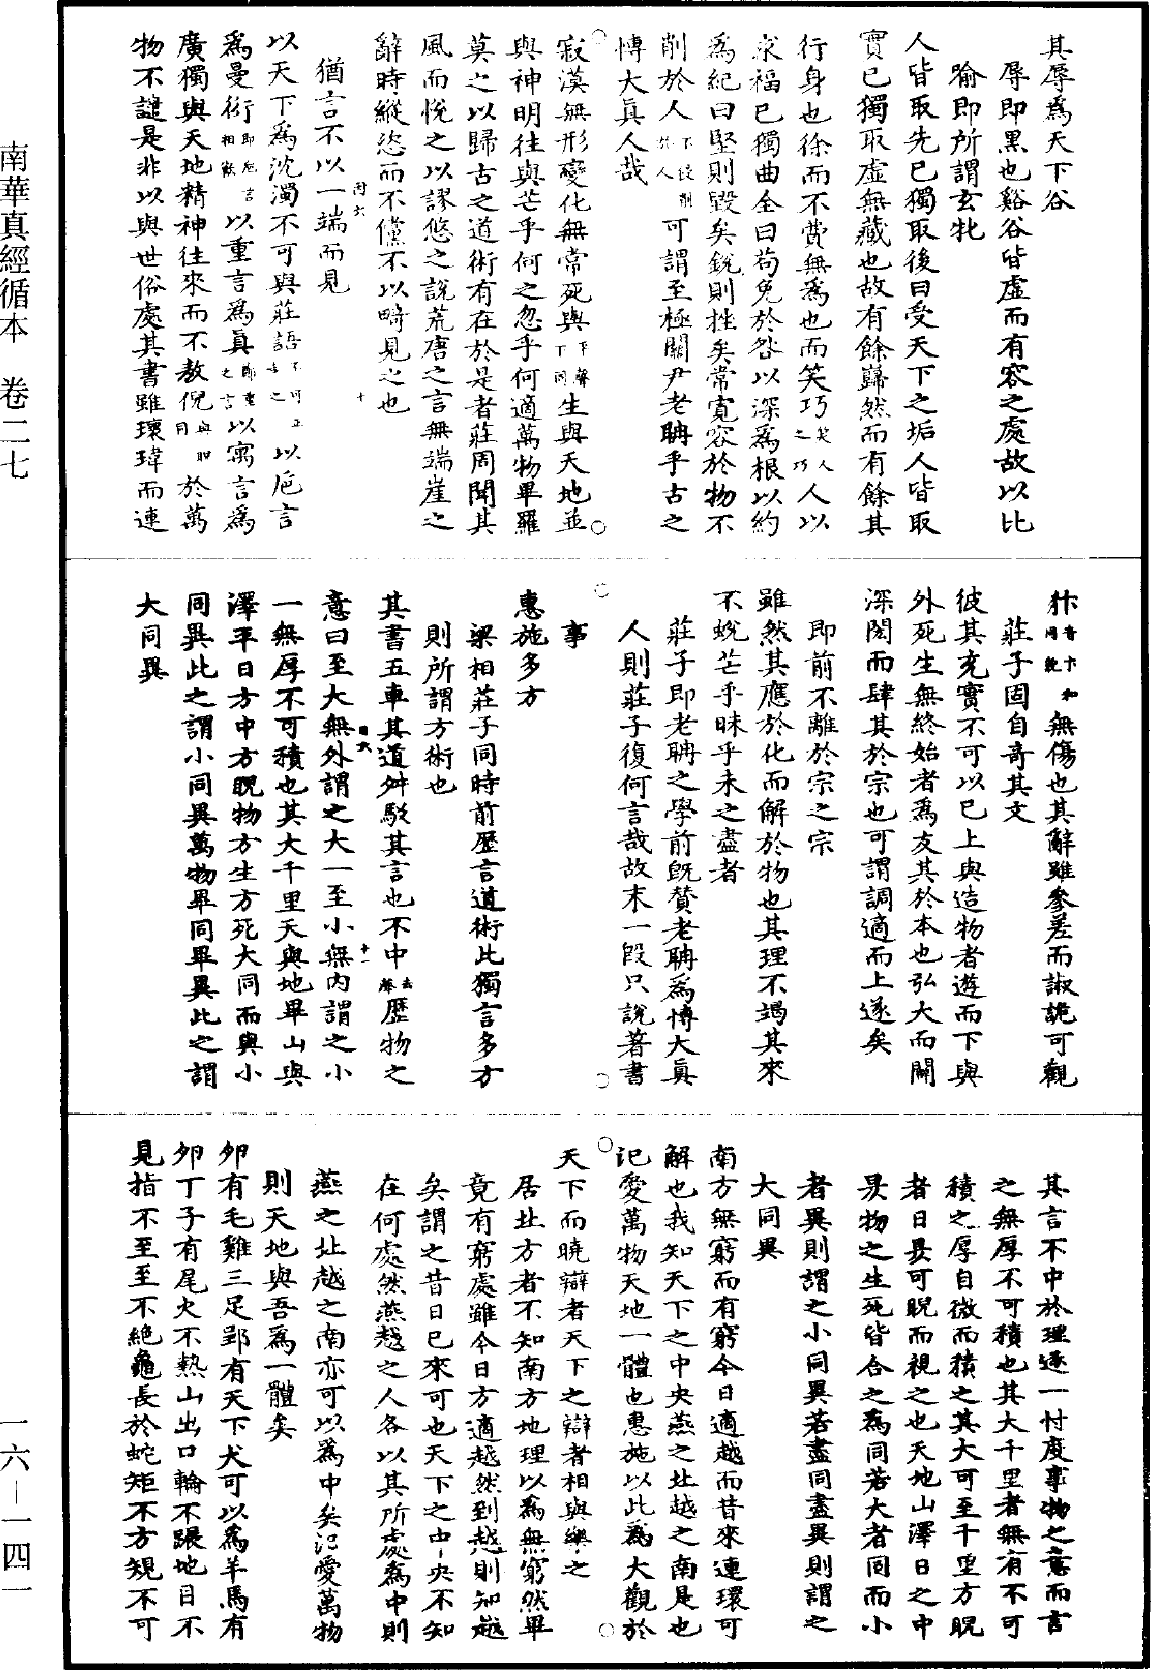 南華真經循本　卷二七
一六－一四一
其辱為天下谷
辱即黑也谿谷皆虛而有容之處故以比
喻即所謂玄牝
人皆取先已獨取後曰受天下之垢人皆取
實已獨取虛無藏也故有餘巋然而有餘其
行身也徐而不費無為也而笑巧笑人之巧人以
求福已獨曲全曰苟免於咎以深為根以約
為紀曰堅則毀矣銳則挫矣常寬容於物不
削於人可謂至極關尹老聃乎古之
博大真人哉
寂漠無形變化無常死與生與天地並
與神明往與芒乎何之忽乎何適萬物畢羅
莫之以歸古之道術有在於是者莊周聞其
風而悅之以謬悠之說荒唐之言無端崖之
辭時縱恣而不儻不以畸見之也
猶言不以一端而見
以天下為沈濁不可與莊語以巵言
為曼衍以重言為真以寓言為
廣獨與天地精神往來而不敖倪於萬
物不譴是非以與世俗處其書雖瓌瑋而連
犿無傷也其辭雖參差而諔詭可觀
莊子固自奇其文
彼其充實不可以已上與造物者遊而下與
外死生無終始者為友其於本也弘大而闢
深閎而肆其於宗也可謂調適而上遂矣
即前不離於宗之宗
雖然其應於化而解於物也其理不竭其來
不蛻芒乎昧乎未之盡者
莊子即老聃之學前既贊老聃為博大真
人則莊子復何言哉故末一段只說著書
事
惠施多方
梁相莊子同時前歷言道術此獨言多方
則所謂方術也
其書五車其道舛駁其言也不中去聲歷物之
意曰至大無外謂之大一至小無內謂之小
一無厚不可積也其大千里天與地卑山與
澤平日方中方睨物方生方死大同而與小
同異此之謂小同異萬物畢同畢異此之謂
大同異
其言不中於理逐一忖度事物之意而言
之無厚不可積也其大千里者無有不可
積之厚自微而積之其大可至千里方睨
者日昃可睨而視之也天地山澤日之中
昃物之生死皆合之為同若大者同而小
者異則謂之小同異若盡同盡異則謂之
大同異
南方無窮而有窮今日適越而昔來連環可
解也我知天下之中央燕之北越之南是也
氾愛萬物天地一體也惠施以此為大觀於
天下而曉辯者天下之辯者相與樂之
居北方者不知南方地理以為無窮然畢
竟有窮處雖今日方適越然到越則知越
矣謂之昔日已來可也天下之中央不知
在何處然燕越之人各以其所處為中則
燕之北越之南亦可以為中矣氾愛萬物
則天地與吾為一體矣
卵有毛雞三足郢有天下犬可以為羊馬有
卵丁子有尾火不熱山出口輪不蹍地目不
見指不至至不絕龜長於蛇矩不方規不可